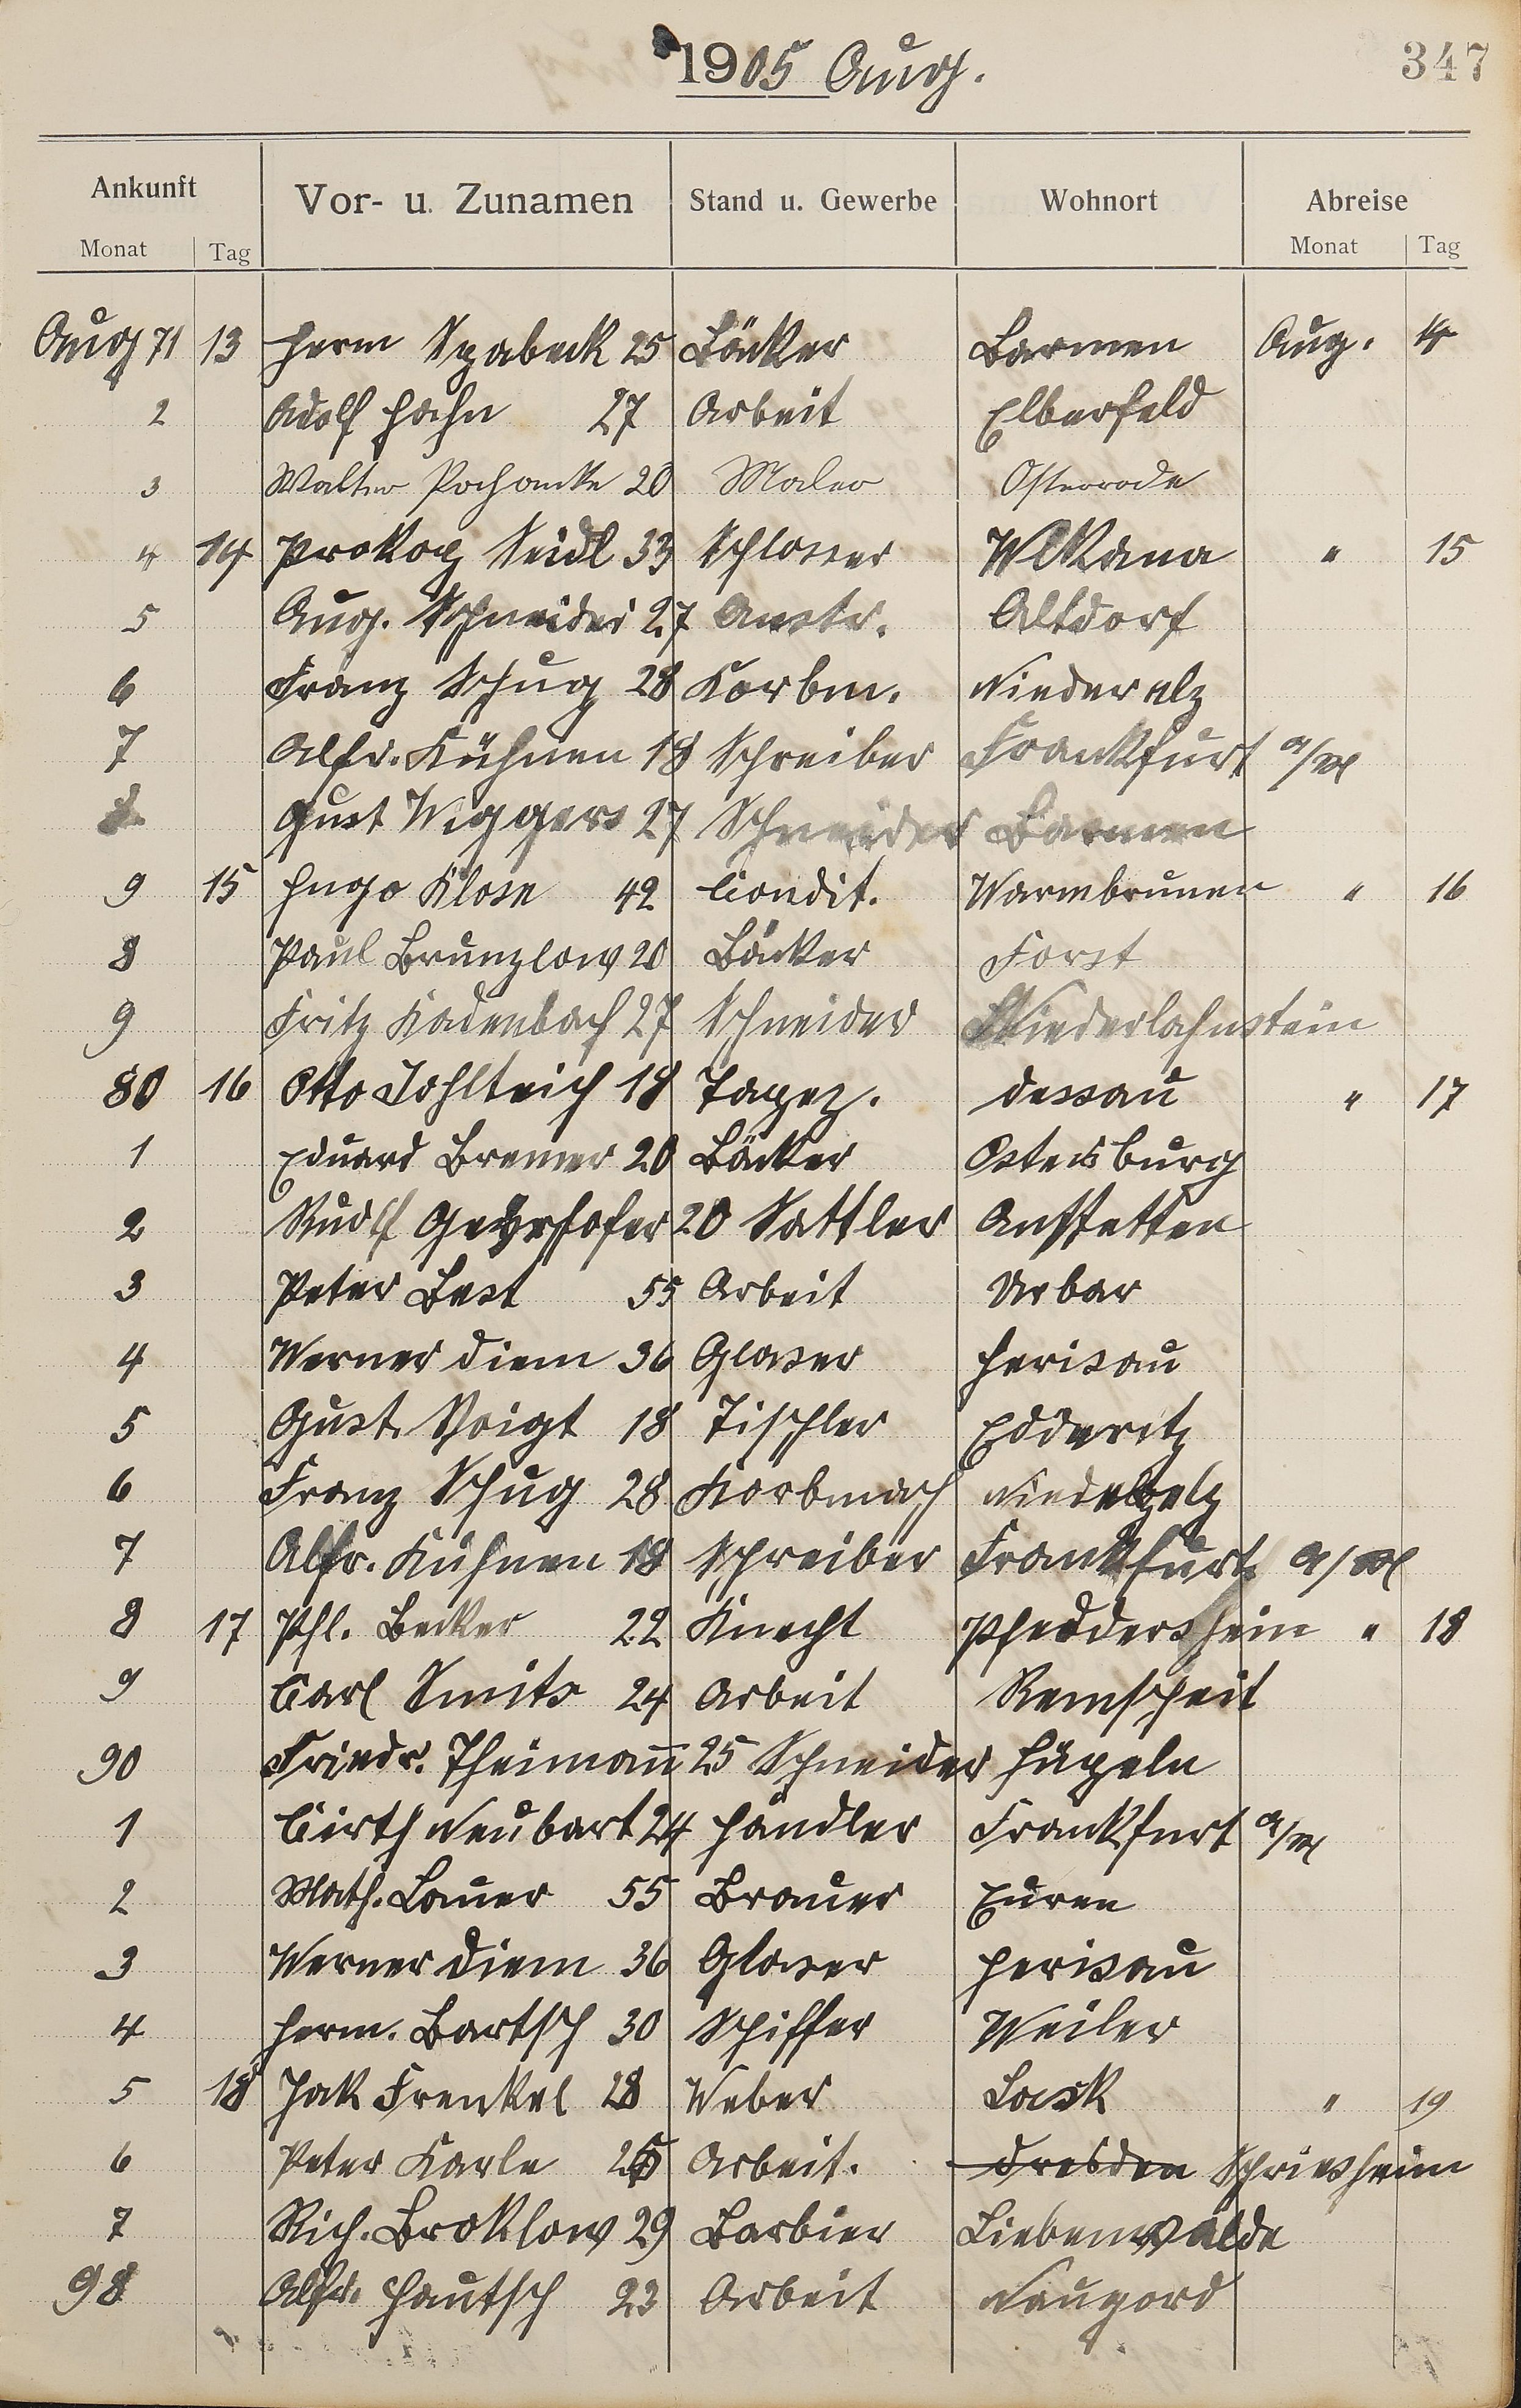 1905 Aug.
347
Ankunft Vor- u. Zunamen Stand u. Gewerbe Wohnort Abreise
Monat Tag Monat Tag
Aug 71 13 Herm Spabeck 25 Bäcker Barmen Aug. 14
2 Adolf Hahn 27 Arbeit Elberfeld
3 Walter Pochanke 20 Maler Osterrode
4 14 Prokop Seidl 33 Schlosser Wlkana " 15
5 Aug. Schneider 27 Anstr. Altdorf
6 Franz Schug 28 Korbm. Niederelz
7 Alfr. Kühnen 18 Schreiber Frankfurt a/M
8 Gust Wiggers 27 Schneider Barmen
9 15 Hugo Klose 42 Condit. Warmbrunnen " 16
8 Paul Brunzlow 20 Bäcker Forst
9 Fritz Kadenbach 27 Schneider Niederlahnstein
80 16 Otto Tohlteich 18 Tapez. Dessau " 17
1 Eduard Bremer 20 Bäcker Ostersburg
2 Rudlf 20 Sattler Anstetten
3 Peter Best 55 Arbeit Urbar
4 Werner Diem 36 Glaser Herisau
5 Gust. Voigt 18 Tischler Edderitz
6 Franz Schug 28 Korbmach
7 Alfr. Kühnen 18 Schreiber Frankfurt a/M
8 17 Phl. Becker 22 Knecht Pfeddersheim " 18
9 Carl Smits 24 Arbeit Remscheit
90 Friedr. Theimann 25 Schneider Hügeln
1 Neubart 24 Händler Frankfurt a/M
2 Math. Lauer 55 Brauer Euren
3 Werner Diem 36 Glaser Herisau
4 Herm. Bartsch 30 Schiffer Weiler
5 18 Jak Frenkel 28 Weber Lask " 19
6 Peter Karle 25 Arbeit. Dresden Schriesheim
7 Rich. Broklow 29 Barbier Liebenwalde
98 Alfr. Hautsch 23 Arbeit Naugard